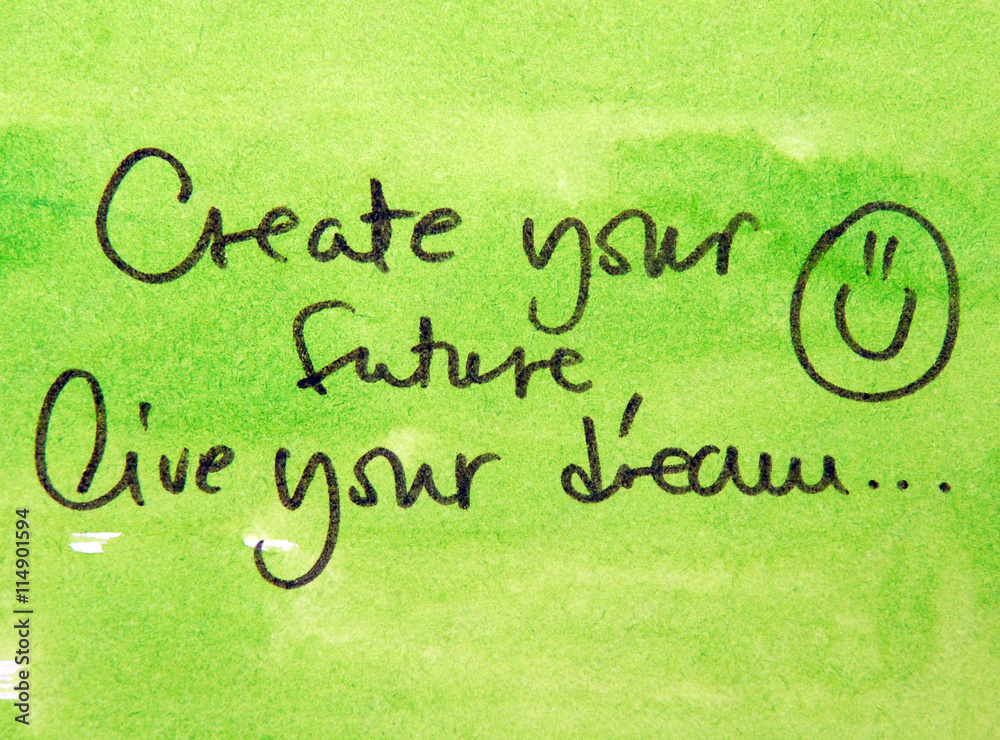 Create your
future
Live your dream...
Adobe Stock | #114901594